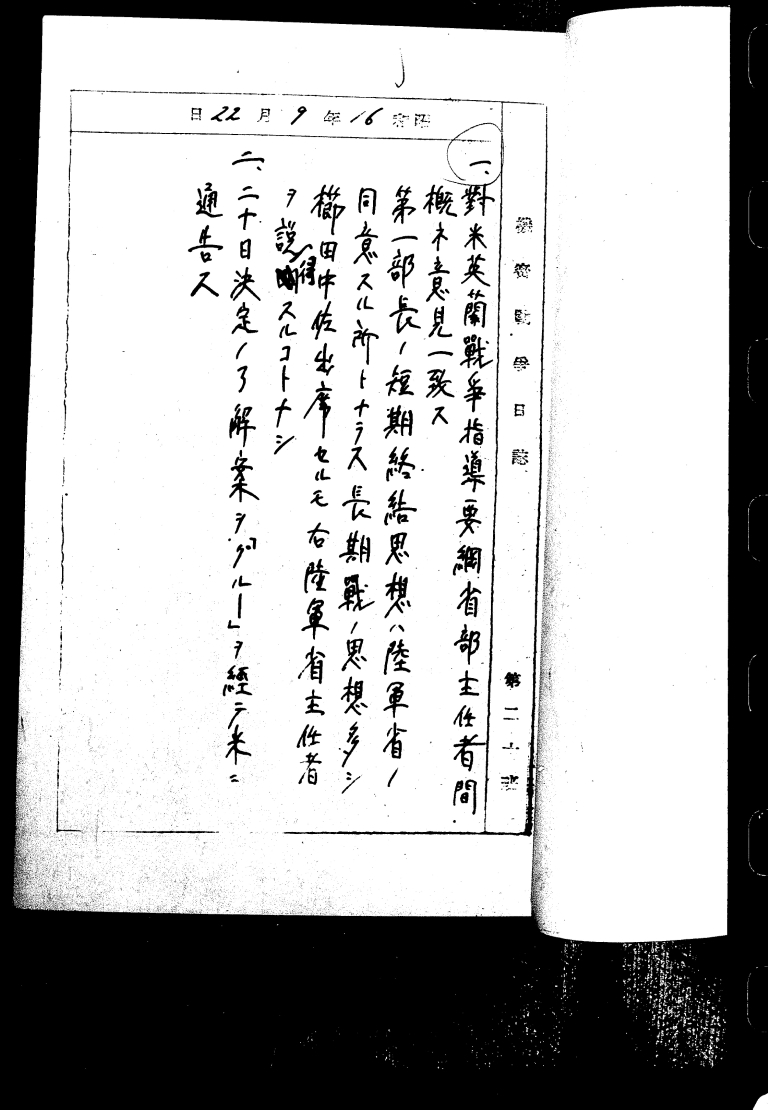 昭和16年9月22日
機密戰爭日誌
第二十班
一、對米英蘭戰爭指導要綱省部主任者間
概ネ意見一致ス
第一部長ノ短期終結思想ハ陸軍省ノ
同意スル所トナラス長期戰ノ思想多シ
櫛田中佐出席セルモ右陸軍省主任者
ヲ説得スルコトナシ
二、二十日決定ノ了解案ヲ「グルー」ヲ経テ米ニ
通告ス